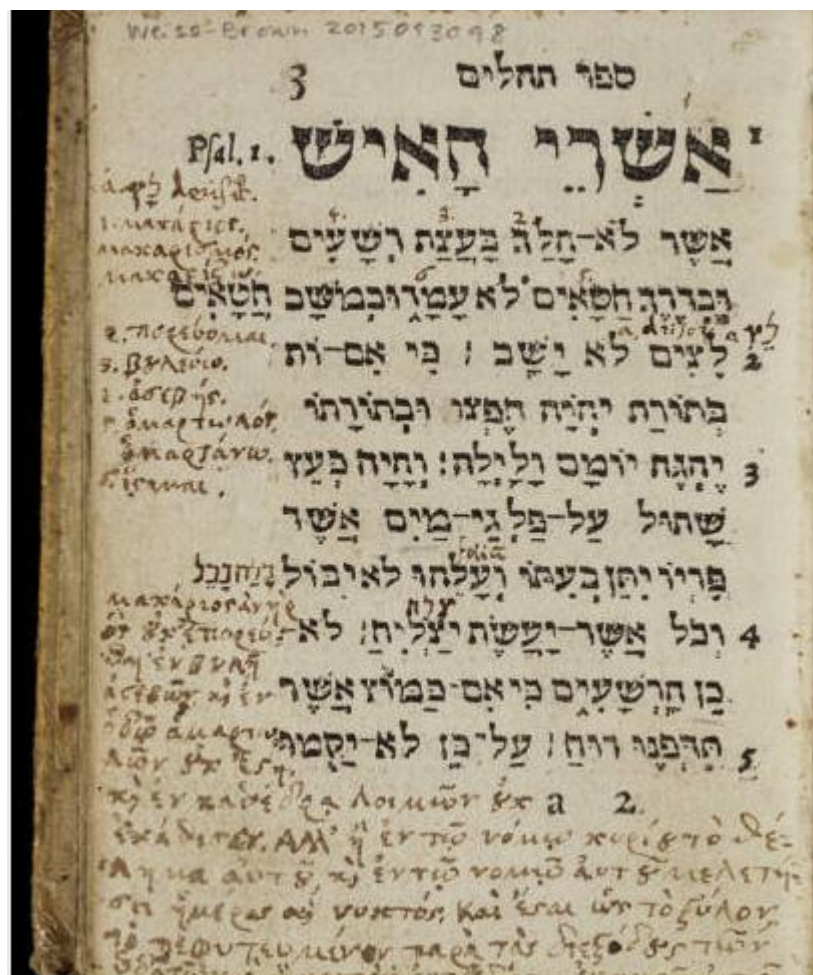 Weiss-Brown 2015013098
ספר תהלים 3
1 אַשְׁרֵי הָאִישׁ Psal. 1.
אֲשֶׁר לֹא־הָלַךְ בַּעֲצַת רְשָׁעִים
וּבְדֶרֶךְ חַטָּאִים לֹא עָמָד וּבְמֹשַׁב חַטָּאִים
2 לֵצִים לֹא יָשָׁב : כִּי אִם־
בְּתוֹרַת יְהֹוָה חֶפְצוֹ וּבְתוֹרָתוֹ
3 יֶהְגֶּה יוֹמָם וָלָיְלָה : וְהָיָה כְּעֵץ
שָׁתוּל עַל־פַּלְגֵי־מַיִם אֲשֶׁר
פִּרְיוֹ יִתֵּן בְּעִתּוֹ וְעָלֵהוּ לֹא יִבּוֹל
4 וְכֹל אֲשֶׁר־יַעֲשֶׂה יַצְלִיחַ : לֹא־
כֵן הָרְשָׁעִים כִּי אִם־כַּמּוֹץ אֲשֶׁר
5 תִּדְּפֶנּוּ רוּחַ : עַל־כֵּן לֹא־יָקֻמוּ
a 2.
1. μακάριος.
μακαρισμός.
μακαρίζω.
3. βȣλεύω.
ἀσεβής.
ἁμαρτωλός.
ἁμαρτάνω.
μακάριος ἀνὴρ
ὃς ȣκ ἐπορεύ-
θη ἐν βȣλῇ
ἀσεβῶν, καὶ ἐν
ὁδῷ ἁμαρτω-
λῶν ȣκ ἔστη,
καὶ ἐν καθέδρᾳ λοιμῶν ȣκ
ἐκάθισεν. Ἀλλ' ἢ ἐν τῷ νόμῳ κυρίȣ τὸ θέ-
λημα αὐτȣ, καὶ ἐν τῷ νόμῳ αὐτȣ μελετή-
σει ἡμέρας καὶ νυκτός. Καὶ ἔσται ὡς τὸ ξύλον
τὸ πεφυτευμένον παρὰ τὰς διεξόδȣς τῶν